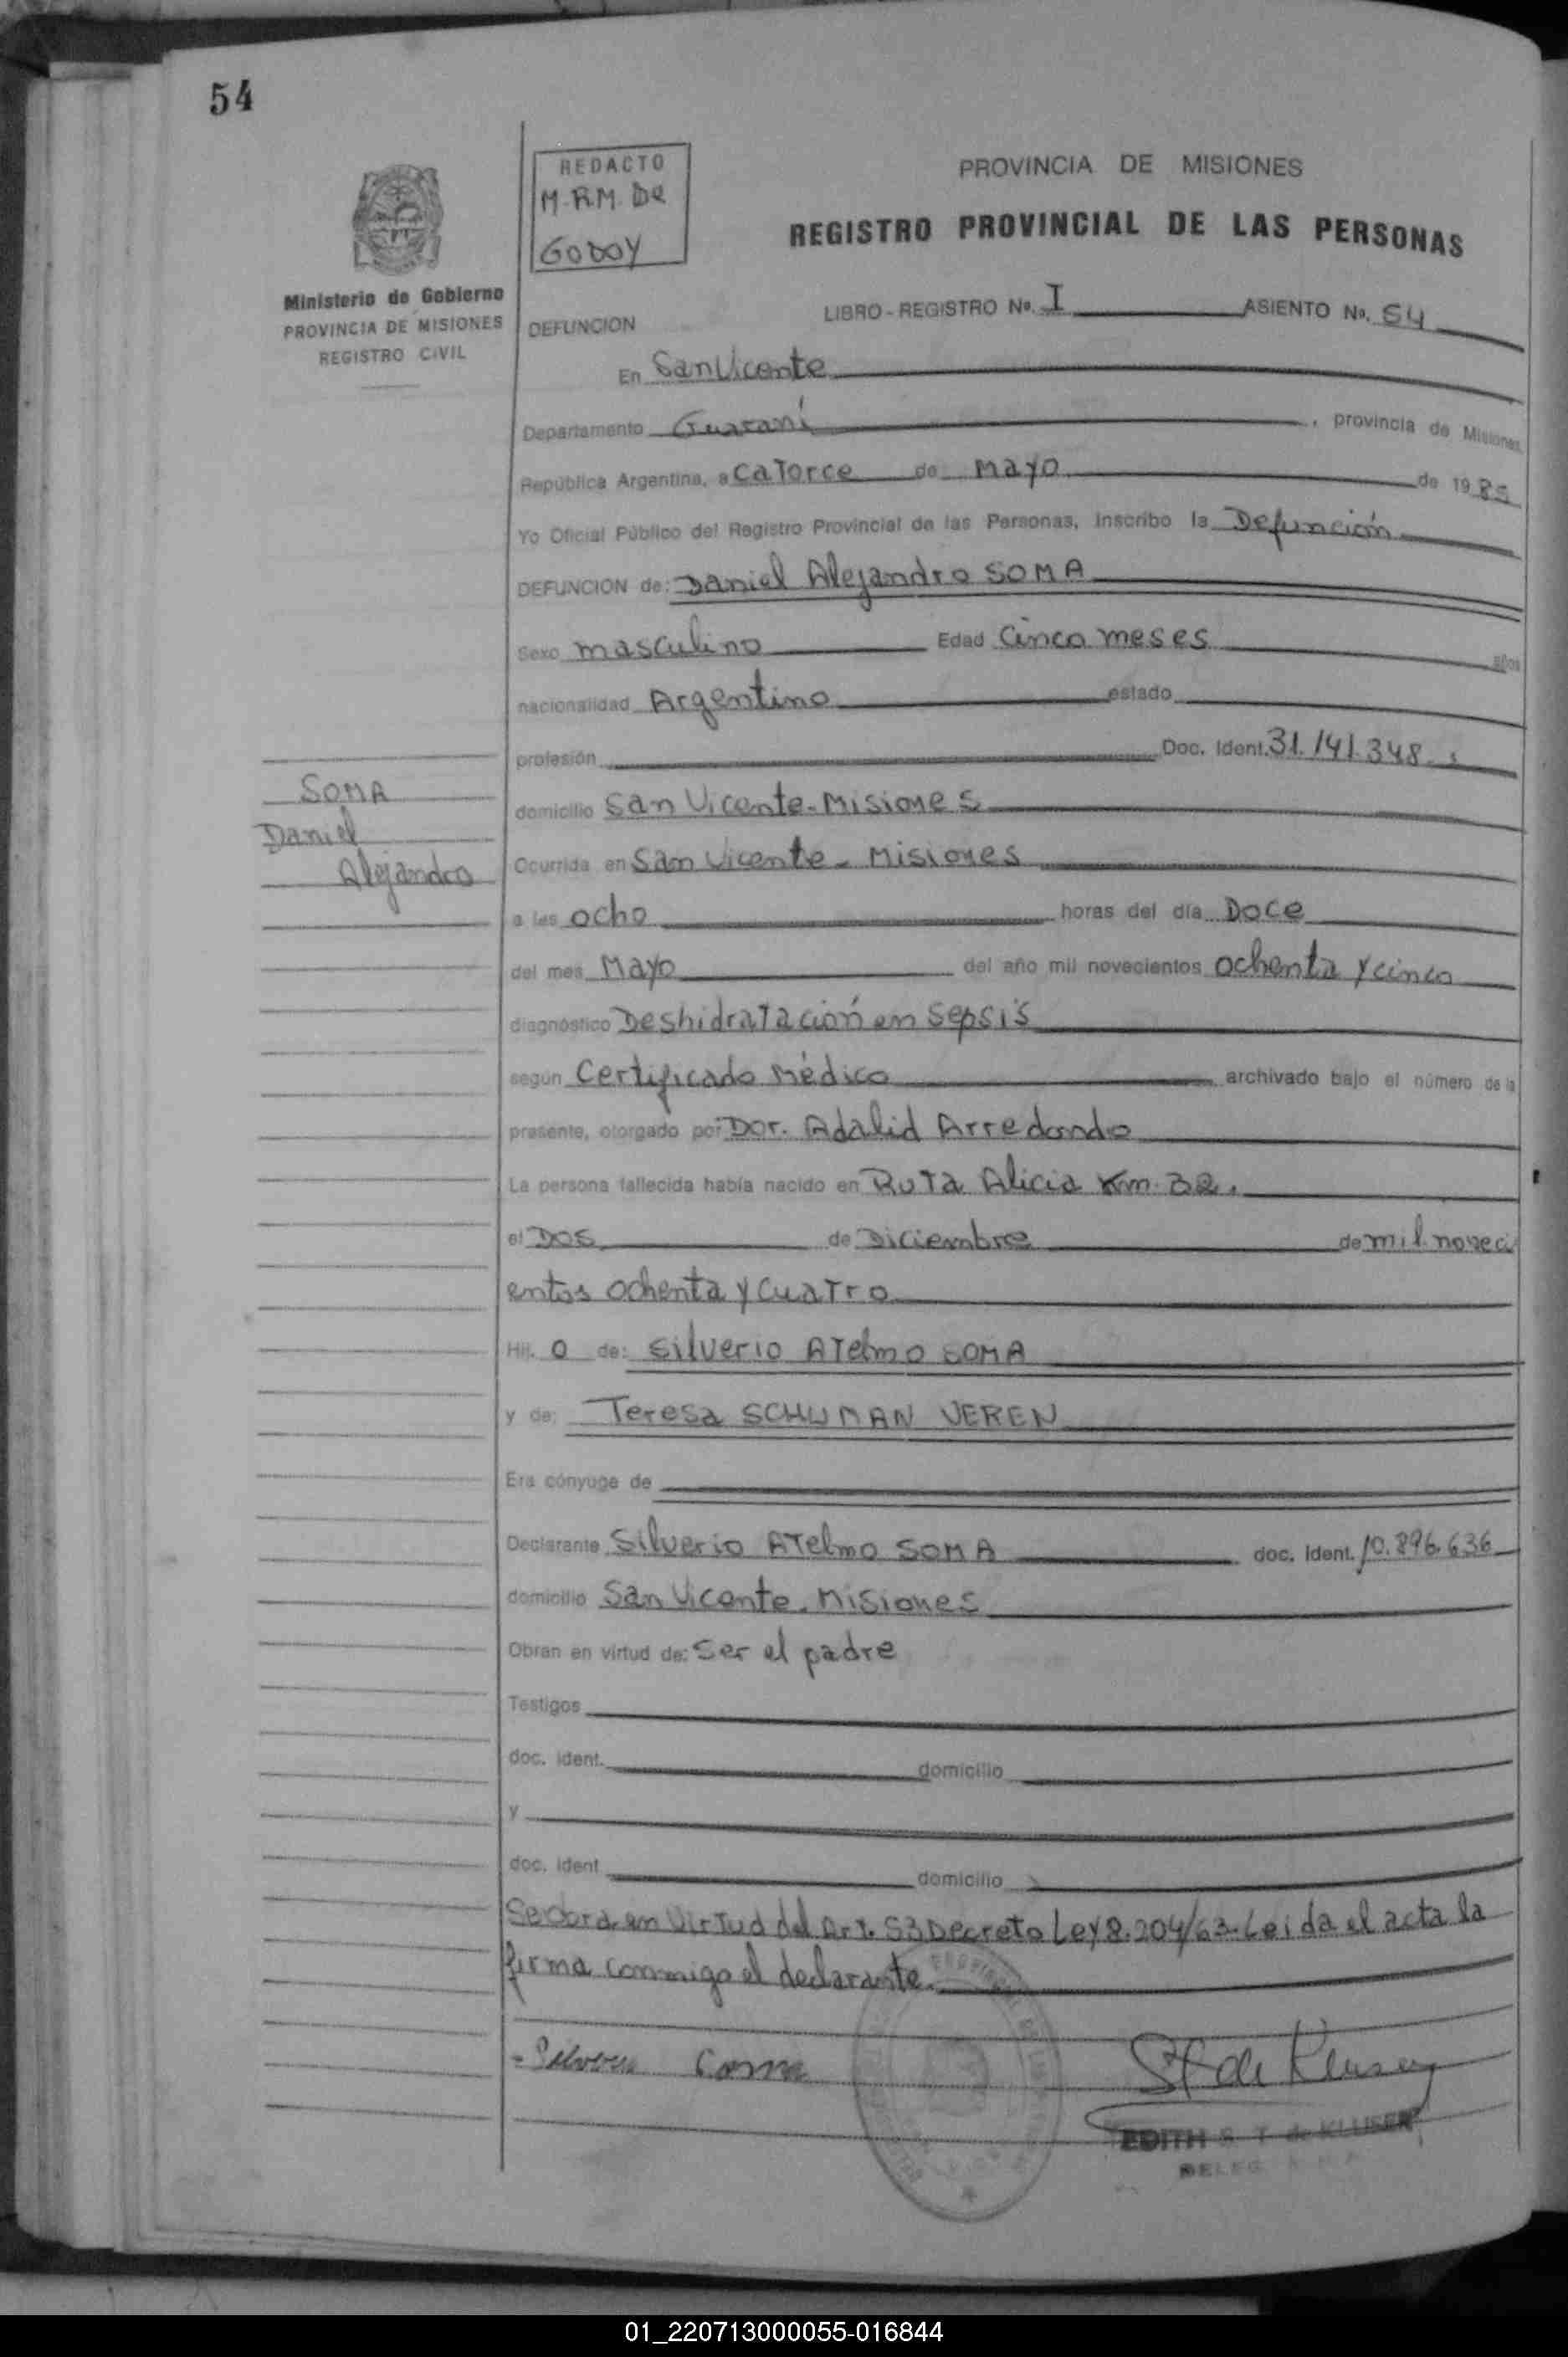 54
REDACTO
M.R.M. De
GODOY
Ministerio de Gobierno
PROVINCIA DE MISIONES
REGISTRO CIVIL
PROVINCIA DE MISIONES
REGISTRO PROVINCIAL DE LAS PERSONAS
LIBRO - REGISTRO Nº. I ASIENTO Nº. 54
DEFUNCION
En San Vicente
Departamento Guaraní, provincia de Misiones
República Argentina, a CaTorce de Mayo de 1985
Yo Oficial Público del Registro Provincial de las Personas, inscribo la Defunción
DEFUNCION de: Daniel Alejandro SOMA
Sexo masculino Edad Cinco meses años
nacionalidad Argentino estado
profesión Doc. Ident. 31.141.348.
domicilio San Vicente-Misiones
Ocurrida en San Vicente - Misiones
a las ocho horas del día Doce
del mes Mayo del año mil novecientos ochenta y cinco
diagnóstico DeshidraTación en Sepsis
según Certificado Médico archivado bajo el número de la
presente, otorgado por Dor. Adalid Arredondo
La persona fallecida había nacido en RuTa Alicia Km. 32.
el Dos de Diciembre de mil noveci
entos ochenta y CuaTro
Hij. o de: Silverio ATelmo SOMA
y de: Teresa SCHUMAN VEREN
Era cónyuge de
Declarante Silverio ATelmo SOMA doc. ident. 10.896.636
domicilio San Vicente. Misiones
Obran en virtud de: Ser el padre
Testigos
doc. ident. domicilio
y
doc. ident domicilio
Se obra en VirTud del ArT. 53 Decreto Ley 8.204/63. Leida el acta la
firma conmigo el declarante.
SOMA
Daniel
Alejandro
Soma
EDITH S. T. de KLUSER
01_220713000055-016844